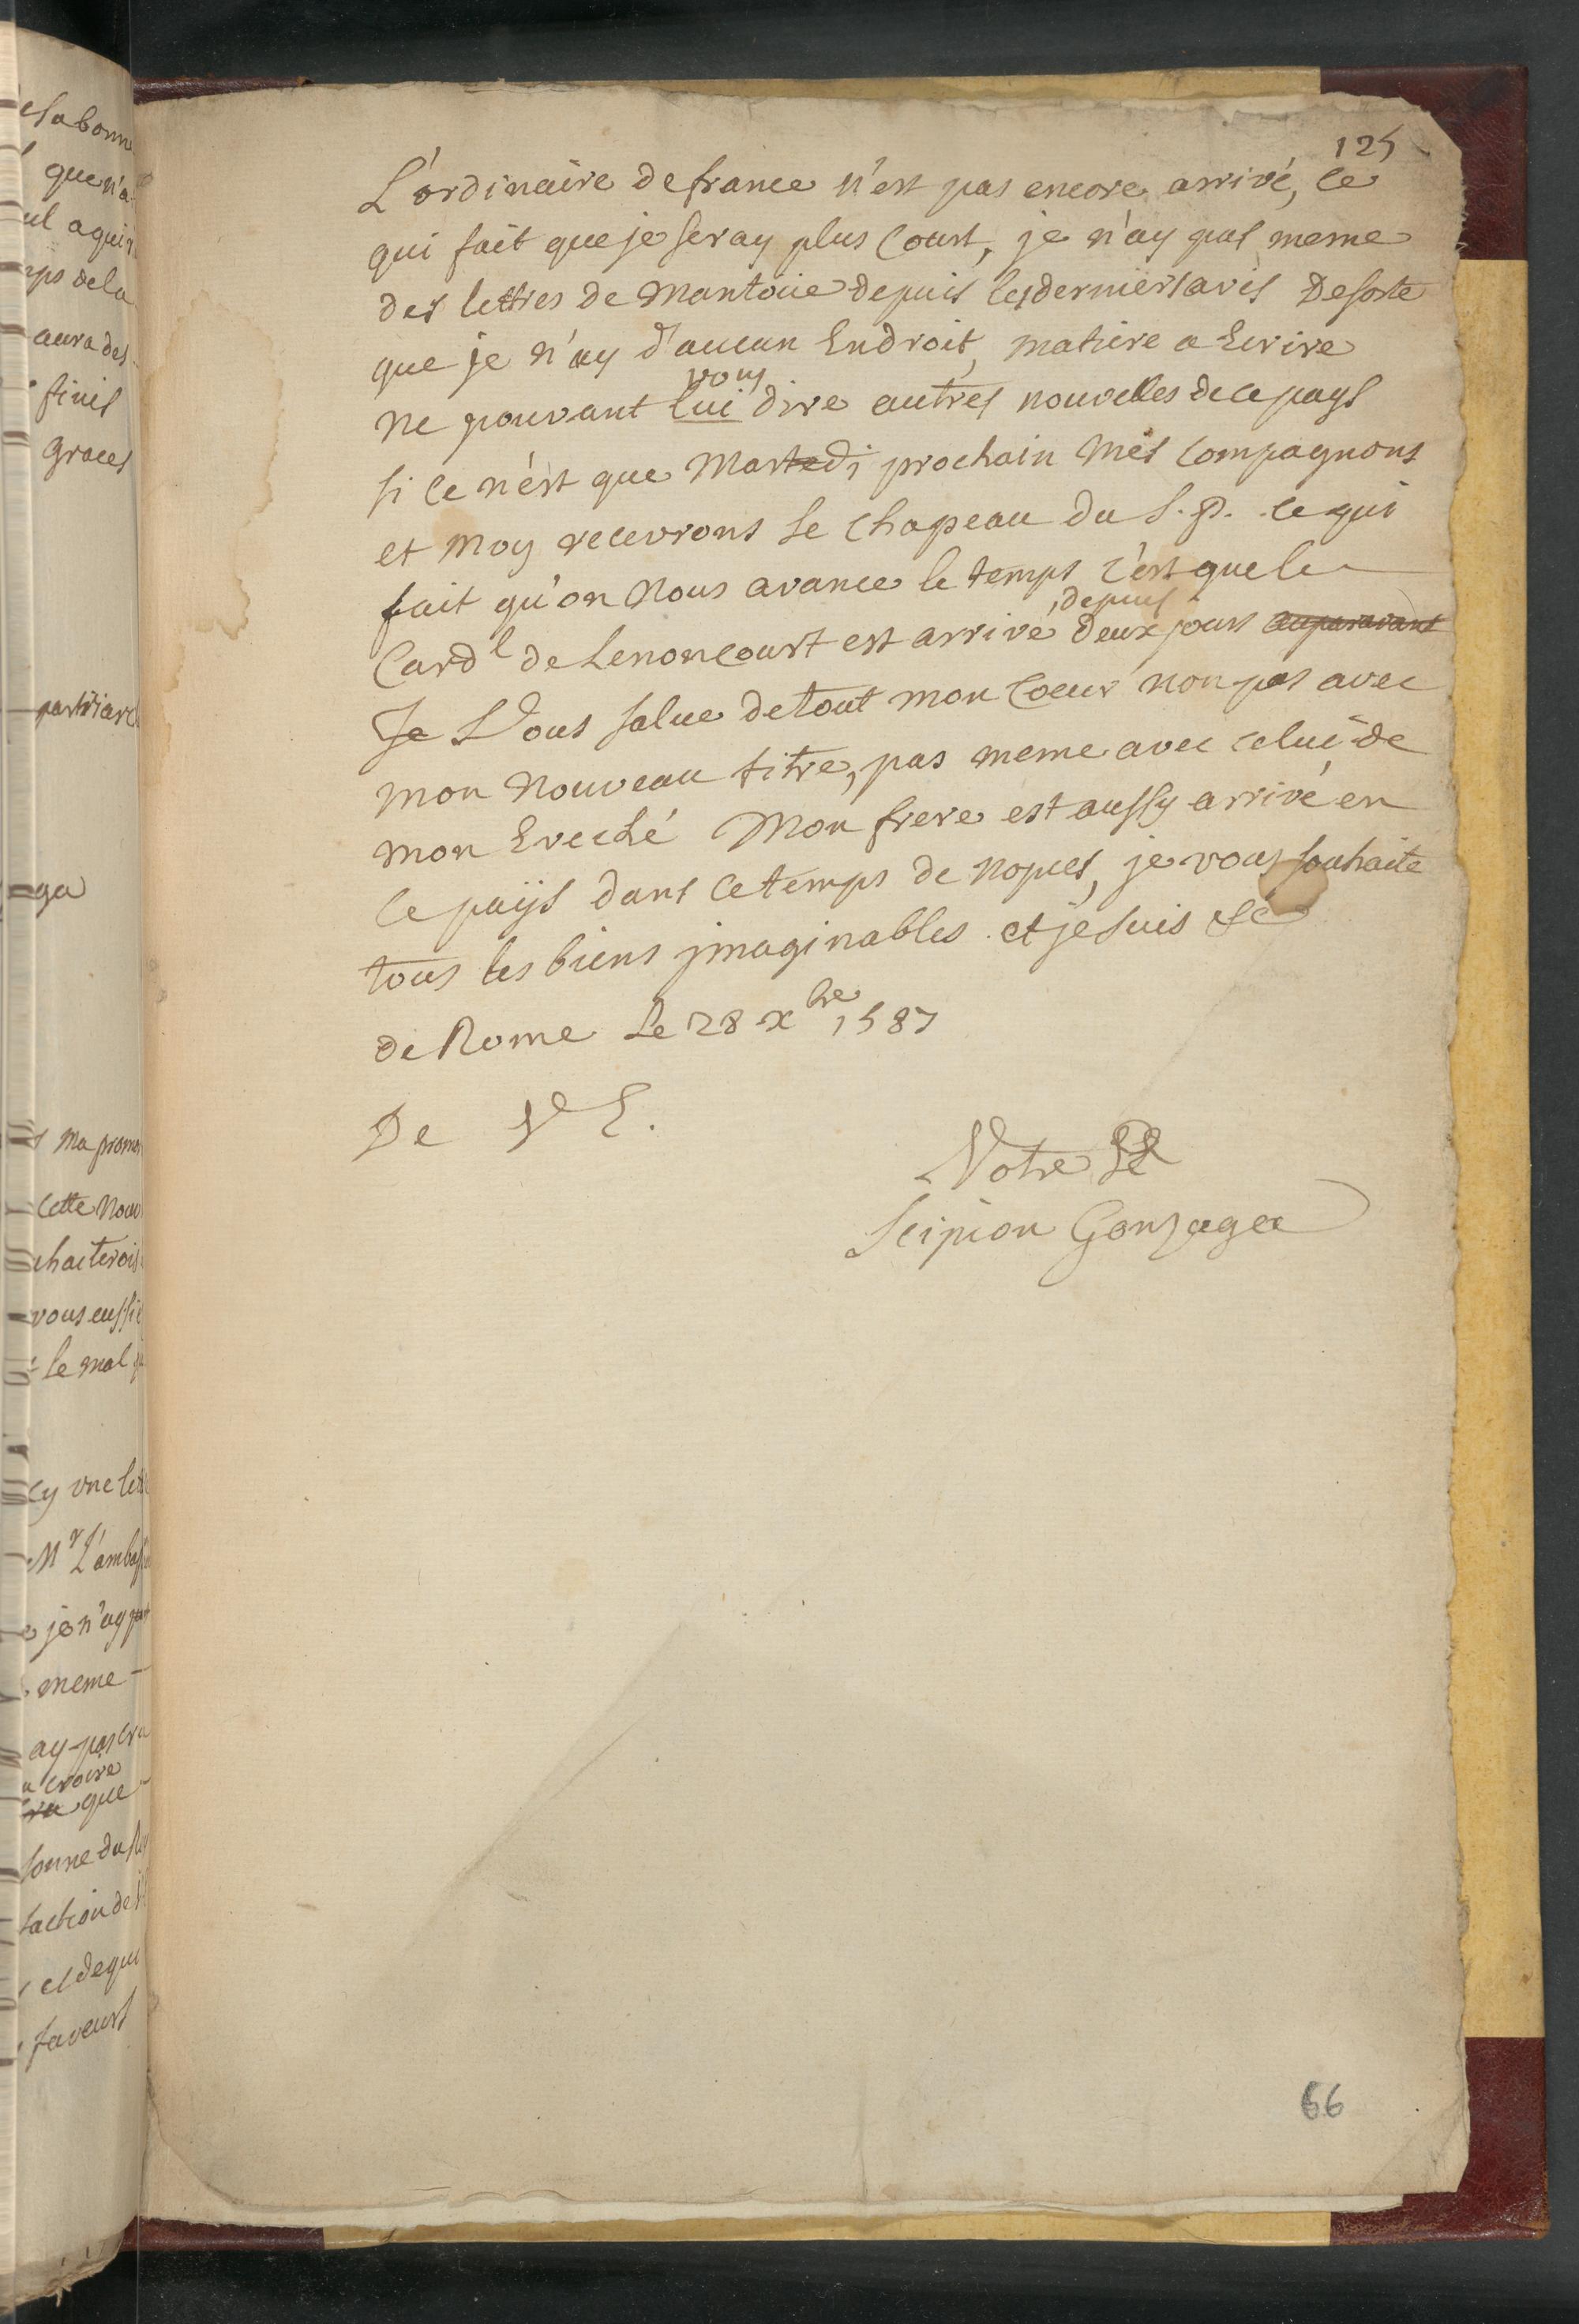 elabonn
que n'a
ul aquis
mps dela
aura des
finis
graces
partriarc
ga
Ma promo
Cette Nouv
uhaiterois
vous eussie
le mal
cy vne let
Mr L'ambass
je n'ay pas
meme
ay pas cru
a croire
cru que
sonne du Roy
faction de
et de qui
faveurs
125
L'ordinaire de france n'est pas encore arrivé, ce
qui fait que je seray plus Court, je n'ay pas meme
des lettres de Mantoüe depuis les derniers avis De sorte
que je n'ay d'aucun Endroit, matiere a Ecrire
vous
Ne pouvant lui dire autres nouvelles de ce pays
si ce n'est que Martedi prochain Mes Compagnons
et Moy recevrons le Chapeau du S. P. ce qui
fait qu'on Nous avance le temps c'est que le
depuis
Cardl de Lenoncourt est arrivé deux jours auparavant
Je Vous salue de tout mon Coeur non pas avec
mon Nouveau titre, pas meme avec celui de
mon Eveché Mon frere est aussy arrivé en
ce païs dans ce temps de nopces, je vous souhaite
tous les biens jmaginables et je suis &c
de Rome Le 28 xbre 1587
De V E.
Votre &c
Scipion Gonzaga
66